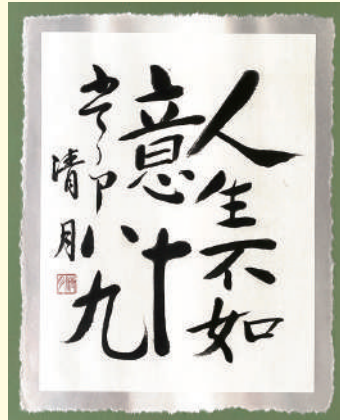 人生不如
意十
八九
清月